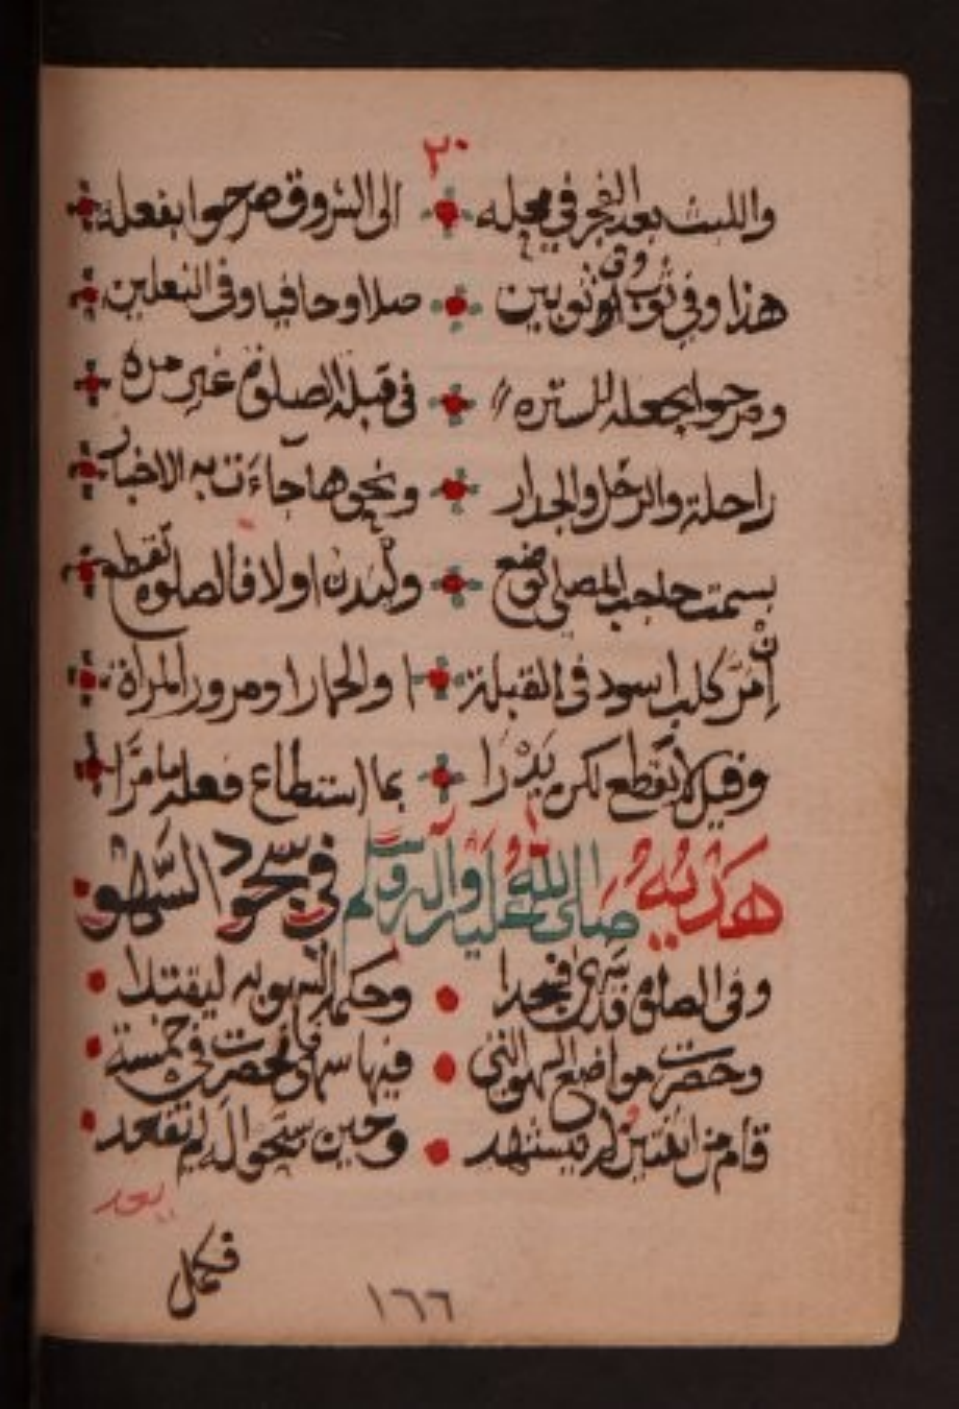 ٢٠
واللبث بعد الفجر في محله الى الشروق صرحوا بفعله
هذا وفي ثوب وفي ثوبين صلا وحافيا وفي النعلين
وصرحوا بجعله للستره في قبلة الصلوة غير مره
راحلة والرحل والجدار ونحوها جاءت به الاخبار
بسمت حاجب المصلي توضع وليدن او لا فالصلوة تقطع
ان مر كلب اسود في القبلة او الحمار او مرور المرأة
وقيل لا تقطع لكن يدرا بما استطاع فعله ما مرا
هديه صلى الله عليه وآله وسلم في سجود السهو
وفي الصلوة قد سهى فسجدا وحكمة السهو به ليقتدا
وحصرت مواضع السهو التي فيها سها فانحصرت في خمسة
قام من اثنتين لم يستشهد وحين سبحوا له لم تقعد
يعد
فكمل
١٦٦